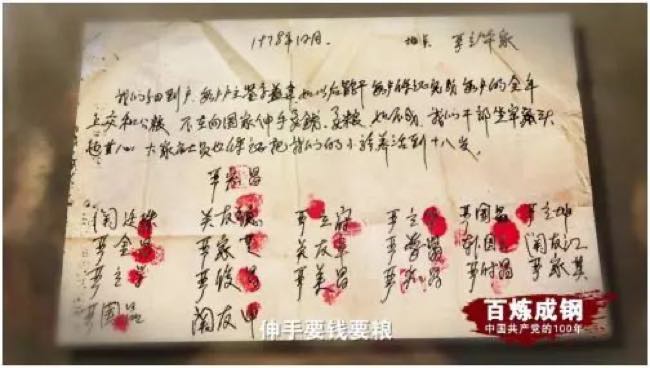 1978年12月. 地点 严立华家
我们分田到户，每户户主签字盖章，如以后能干，每户保证完成每户的全年
上交和公粮，不在向国家伸手要钱、要粮，如不成，我们干部坐牢杀头
也甘心，大家社员也保证把我们的小孩养活到十八岁。
严宏昌
关廷珠 关友德 严立符 严立华 严国昌 严立坤
严金昌 严家芝 关友章 严学昌 韩国云 关友江
严立学 严俊昌 严美昌 严付昌 严家其
严国品 关友申
伸手要钱要粮
百炼成钢
中国共产党的100年